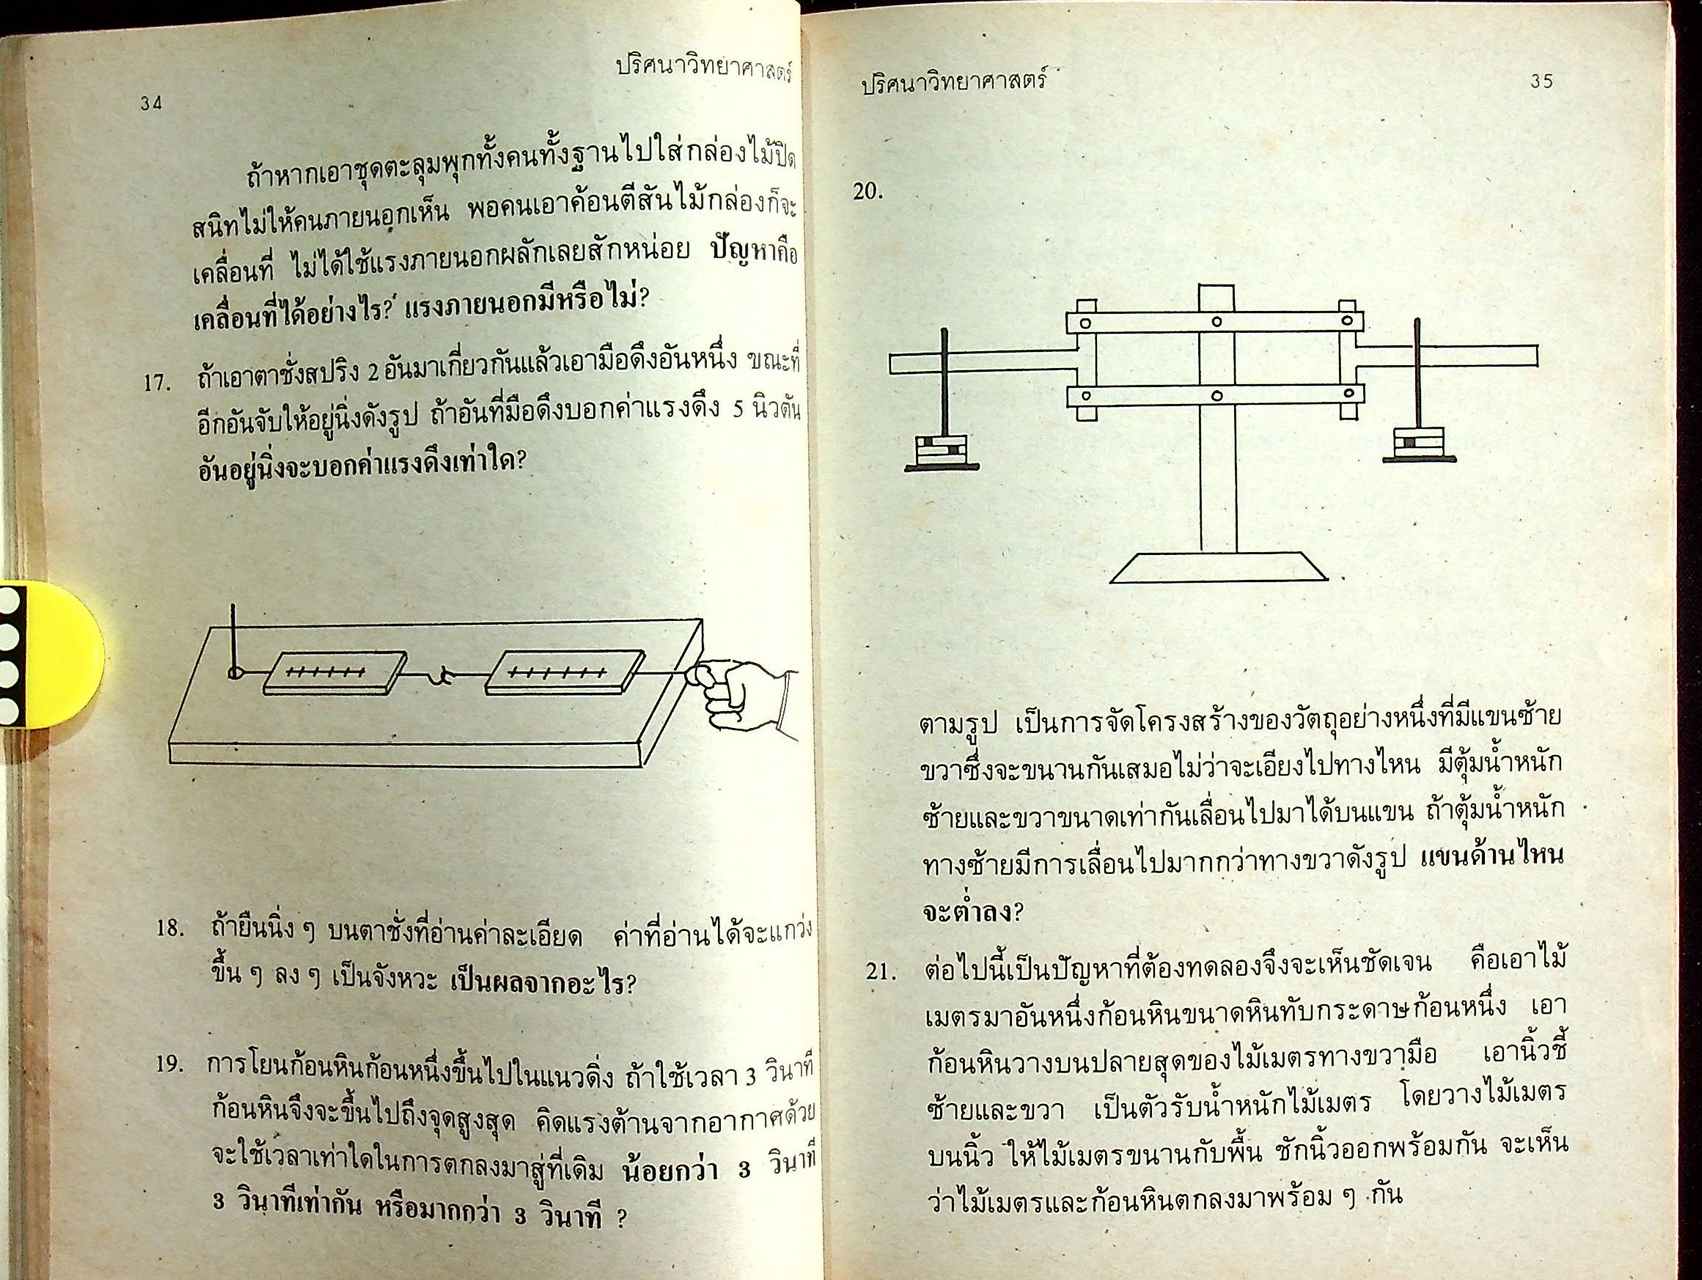 34
ปริศนาวิทยาศาสตร์
ถ้าหากเอาชุดตะลุมพุกทั้งคนทั้งฐานไปใส่กล่องไม้ปิด
สนิทไม่ให้คนภายนอกเห็น พอคนเอาค้อนตีสันไม้กล่องก็จะ
เคลื่อนที่ ไม่ได้ใช้แรงภายนอกผลักเลยสักหน่อย ปัญหาคือ
เคลื่อนที่ได้อย่างไร? แรงภายนอกมีหรือไม่?
17. ถ้าเอาตาชั่งสปริง 2 อันมาเกี่ยวกันแล้วเอามือดึงอันหนึ่ง ขณะที่
อีกอันจับให้อยู่นิ่งดังรูป ถ้าอันที่มือดึงบอกค่าแรงดึง 5 นิวตัน
อันอยู่นิ่งจะบอกค่าแรงดึงเท่าใด?
18. ถ้ายืนนิ่ง ๆ บนตาชั่งที่อ่านค่าละเอียด ค่าที่อ่านได้จะแกว่ง
ขึ้น ๆ ลง ๆ เป็นจังหวะ เป็นผลจากอะไร?
19. การโยนก้อนหินก้อนหนึ่งขึ้นไปในแนวดิ่ง ถ้าใช้เวลา 3 วินาที
ก้อนหินจึงจะขึ้นไปถึงจุดสูงสุด คิดแรงต้านจากอากาศด้วย
จะใช้เวลาเท่าใดในการตกลงมาสู่ที่เดิม น้อยกว่า 3 วินาที
3 วินาทีเท่ากัน หรือมากกว่า 3 วินาที ?
ปริศนาวิทยาศาสตร์
35
20.
ตามรูป เป็นการจัดโครงสร้างของวัตถุอย่างหนึ่งที่มีแขนซ้าย
ขวาซึ่งจะขนานกันเสมอไม่ว่าจะเอียงไปทางไหน มีตุ้มน้ำหนัก
ซ้ายและขวาขนาดเท่ากันเลื่อนไปมาได้บนแขน ถ้าตุ้มน้ำหนัก
ทางซ้ายมีการเลื่อนไปมากกว่าทางขวาดังรูป แขนด้านไหน
จะต่ำลง?
21. ต่อไปนี้เป็นปัญหาที่ต้องทดลองจึงจะเห็นชัดเจน คือเอาไม้
เมตรมาอันหนึ่งก้อนหินขนาดหินทับกระดาษก้อนหนึ่ง เอา
ก้อนหินวางบนปลายสุดของไม้เมตรทางขวามือ เอานิ้วชี้
ซ้ายและขวา เป็นตัวรับน้ำหนักไม้เมตร โดยวางไม้เมตร
บนนิ้ว ให้ไม้เมตรขนานกับพื้น ชักนิ้วออกพร้อมกัน จะเห็น
ว่าไม้เมตรและก้อนหินตกลงมาพร้อม ๆ กัน